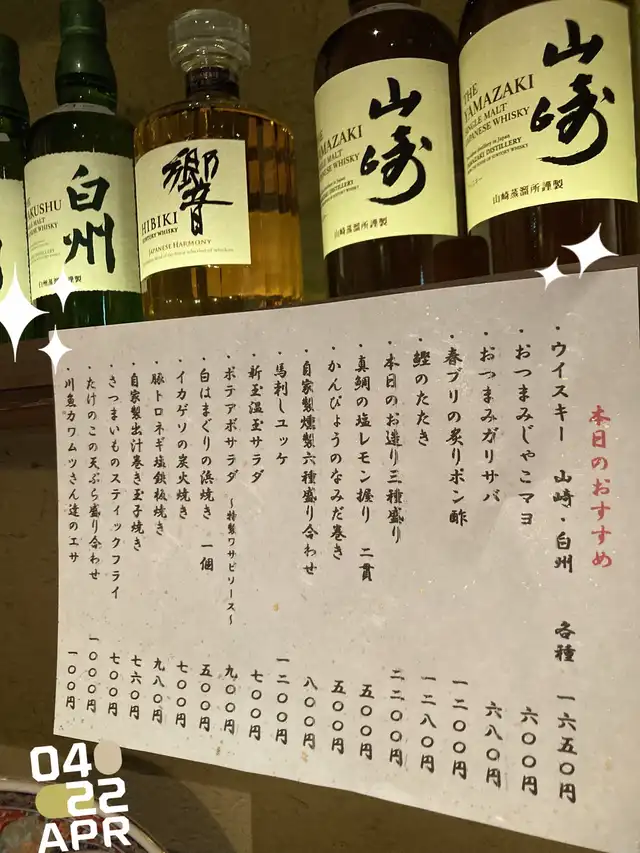 AKUSHU
LE MALT
白州
響
HIBIKI
SUNTORY WHISKY
JAPANESE HARMONY
THE
YAMAZAKI
SINGLE MALT
JAPANESE WHISKY
山崎
YAMAZAKI DISTILLERY
山崎蒸溜所謹製
THE
YAMAZAKI
SINGLE MALT
JAPANESE WHISKY
山崎
YAMAZAKI DISTILLERY
山崎蒸溜所謹製
本日のおすすめ
・ウイスキー 山崎・白州 各種 一六五〇円
・おつまみじゃこマヨ 六〇〇円
・おつまみガリサバ 六八〇円
・春ブリの炙りポン酢 一二〇〇円
・鰹のたたき 一二八〇円
・本日のお造り三種盛り 二二〇〇円
・真鯛の塩レモン握り 二貫 五〇〇円
・かんぴょうのなみだ巻き 五〇〇円
・自家製燻製六種盛り合わせ 八〇〇円
・馬刺しユッケ 一二〇〇円
・新玉温玉サラダ 七〇〇円
・ポテアボサラダ ～特製ワサビソース～ 九〇〇円
・白はまぐりの浜焼き 一個 五〇〇円
・イカゲソの炭火焼き 七〇〇円
・豚トロネギ塩鉄板焼き 九八〇円
・自家製出汁巻き玉子焼き 七六〇円
・さつまいものスティックフライ 七〇〇円
・たけのこの天ぷら盛り合わせ 一〇〇〇円
・川魚カワムツさん達のエサ 一〇〇円
04
22
APR